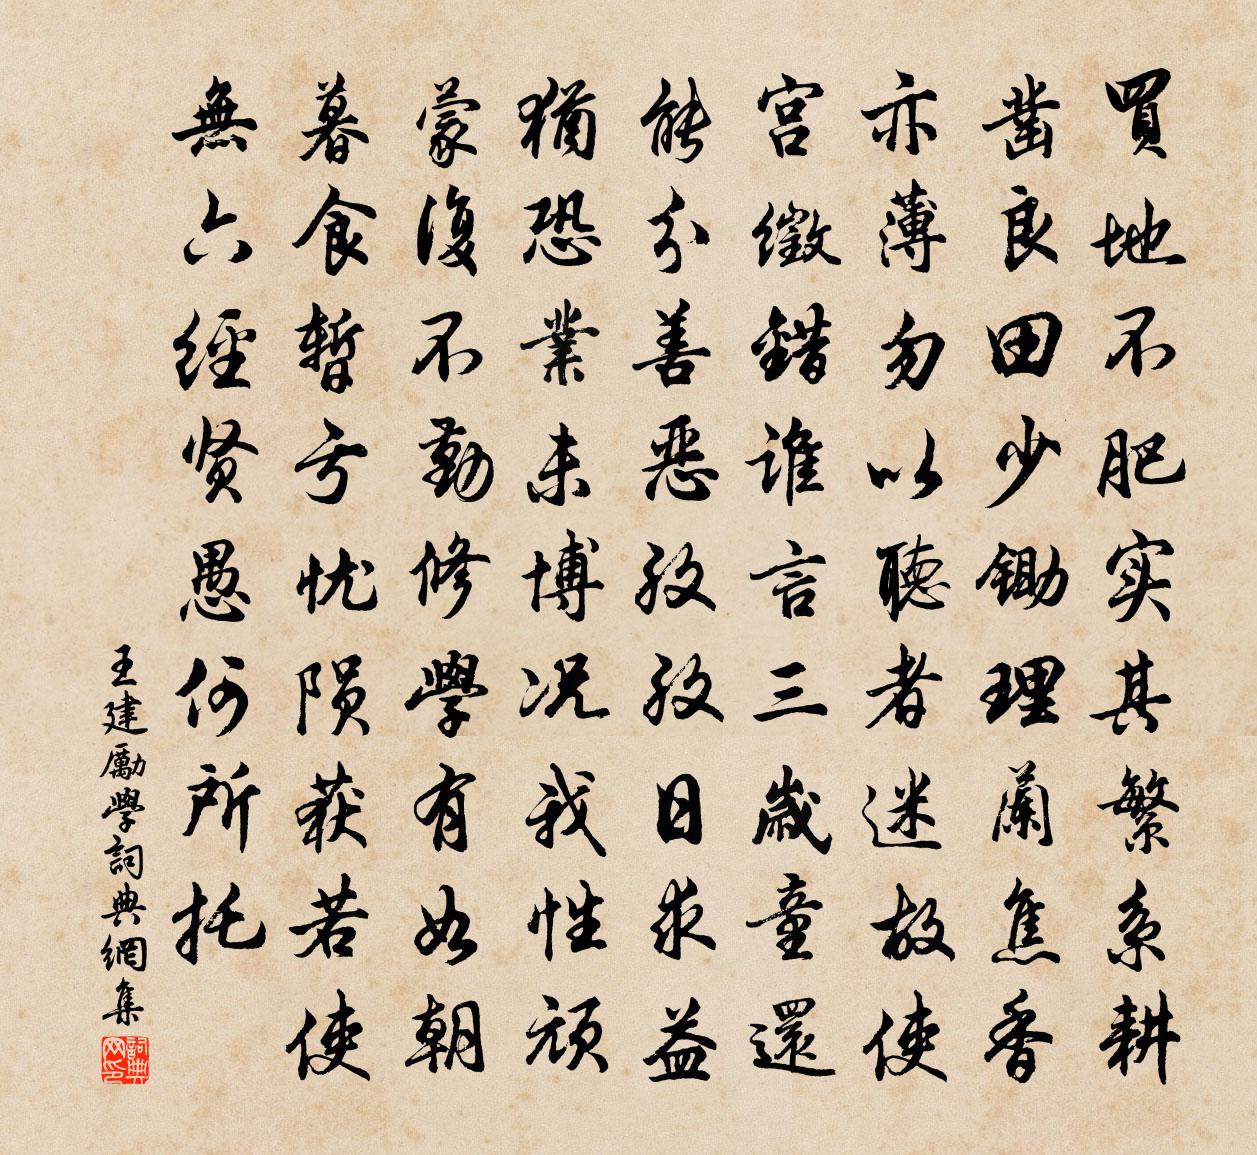 買地不肥实其繁系耕
凿良田少鋤理蘭焦香
亦薄勿以聽者迷故使
宫徵錯誰言三歲童還
能分善惡孜孜日求益
猶恐業未博况我性頑
蒙復不勤修學有如朝
暮食暫亏忧陨获若使
無六經贤愚何所托
王建勵學詞典網集
詞典网印